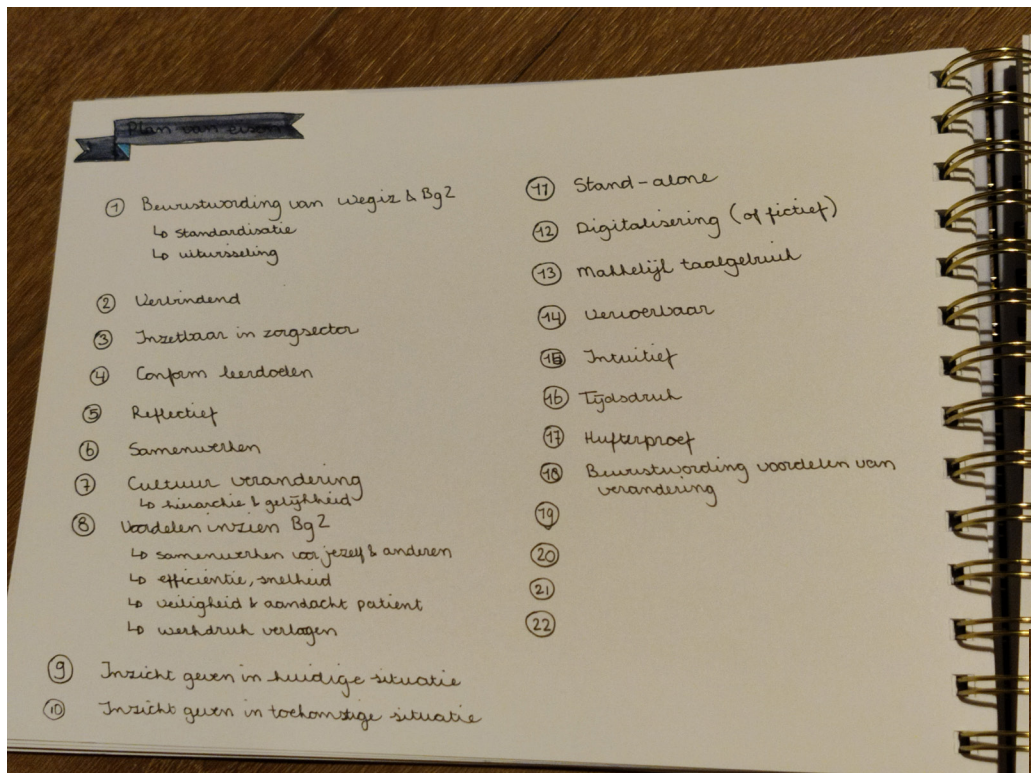 Plan van eisen
① Bewustwording van wegiz & Bgz
↳ standardisatie
↳ uitwisseling
② Verbindend
③ Inzetbaar in zorgsector
④ Conform leerdoelen
⑤ Reflectief
⑥ Samenwerken
⑦ Cultuur verandering
↳ hierarchie & gelijkheid
⑧ Voordelen inzien Bgz
↳ samenwerken voor jezelf & anderen
↳ efficiëntie, snelheid
↳ veiligheid & aandacht patient
↳ werkdruk verlagen
⑨ Inzicht geven in huidige situatie
⑩ Inzicht geven in toekomstige situatie
⑪ Stand-alone
⑫ Digitalisering (of fictief)
⑬ Makkelijk taalgebruik
⑭ Vervoerbaar
⑮ Intuitief
⑯ Tijdsdruk
⑰ Hufterproef
⑱ Bewustwording voordelen van
verandering
⑲
⑳
㉑
㉒